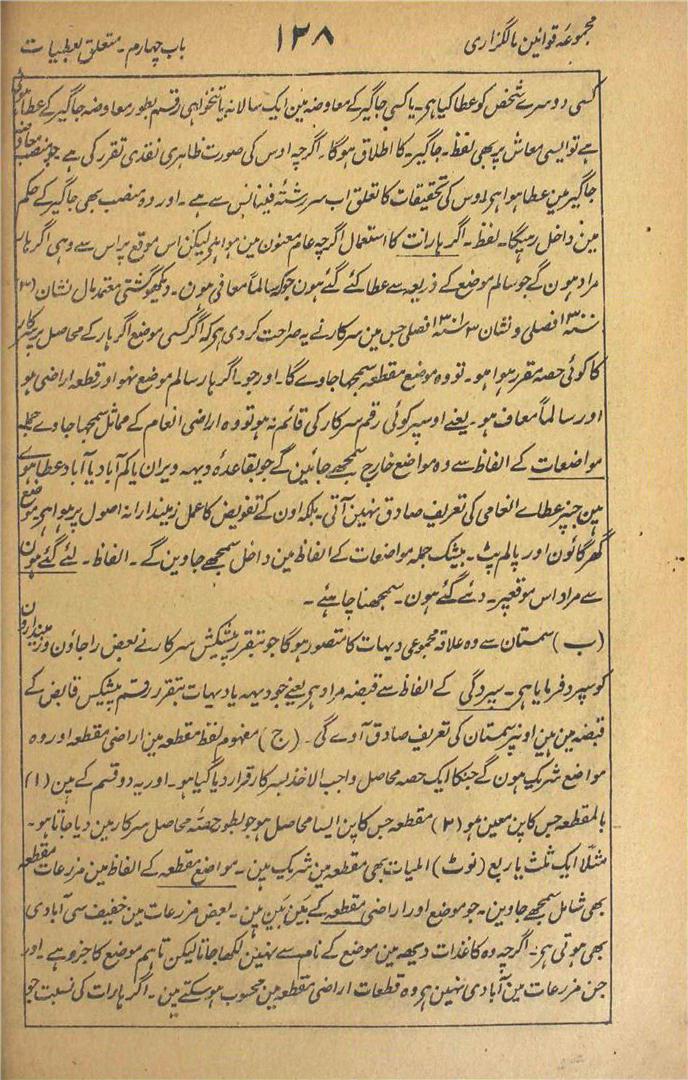 مجموعۂ قوانین مالگزاری ۱۲۸ باب چہارم۔ متعلق بعطیات
کسی دوسرے شخص کو عطا کیا ہی۔ یا کسی جاگیر کے معاوضہ مین ایک سالانہ یا تنخواہی رقم بطور معاوضہ جاگیر کے عطا ہوئی
ہے تو ایسی معاش پر بھی لفظ۔ جاگیر۔ کا اطلاق ہوگا۔ اگرچہ اوس کی صورت ظاہری نقدی تقرر کی ہے جو منصب معاوضہ
جاگیر مین عطا ہوا ہی اوس کی تحقیقات کا تعلق اب سررشتۂ فینانس سے ہے۔ اور وہ منصب بھی جاگیر کے حکم
مین داخل رہیگا۔ لفظ۔ اگرہارات کا استعمال اگرچہ عام معنون مین ہوا ہی لیکن اس موقع پر اس سے وہی اگرہار
مراد ہون گے جو سالم موضع کے ذریعہ سے عطا کئے گئے ہون جو کہ سالماً معافی ہون۔ دیکھو گشتی معتمد مال نشان (۳)
سنہ ۱۳۰۰ فصلی و نشان ۳ سنہ ۱۳۰۱ فصلی جس مین سرکار نے یہ صراحت کر دی ہی کہ اگر کسی موضع اگرہار کے محاصل پر سرکار
کا کوئی حصہ مقرر ہوا ہو۔ تو وہ موضع مقطعہ سمجہا جاوے گا۔ اور جو۔ اگرہار سالم موضع نہو اور قطعہ اراضی ہو
اور سالماً معاف ہو۔ یعنے اوسپر کوئی رقم سرکار کی قائم نہ ہو تو وہ اراضی انعام کے مماثل سمجہا جاوے جملہ
مواضعات کے الفاظ سے وہ مواضع خارج سمجھے جائین گے جو بقاعدۂ دیہہ ویران یا کم آباد یا آباد عطا ہوے
ہین جنپر عطاے انعامی کی تعریف صادق نہین آتی۔ بلکہ اون کے تفویض کا عمل زمیندارانہ اصول پر ہوا ہی۔ موضع
گھر گانون اور پالم پٹ۔ بیشک جملہ مواضعات کے الفاظ مین داخل سمجھے جاوین گے۔ الفاظ۔ لئے گئے ہون
سے مراد اس موقعپر۔ دئے گئے ہون۔ سمجھنا چاہئے۔
(ب) سمستان سے وہ علاقہ مجموعی دیہات کا متصور ہوگا جو بتقرر پیشکش سرکار نے بعض راجاؤن و زمیندارون
کو سپرد فرمایا ہی۔ سپردگی کے الفاظ سے قبضہ مراد ہی یعنے جو دیہہ یا دیہات بتقرر رقم پیشکس قابض کے
قبضہ مین ہین اونپر سمستان کی تعریف صادق آوے گی۔ (ج) مفہوم لفظ مقطعہ مین اراضی مقطعہ اور وہ
مواضع شریک ہون گے جنکا ایک حصہ محاصل واجب الاخذ بسرکار قرار دیا گیا ہو۔ اور یہ دو قسم کے ہین (۱)
بالمقطعہ جس کا پن معین ہو (۲) مقطعہ جس کا پن ایسا محاصل ہو جو بطور حصۂ محاصل سرکار مین دیا جاتا ہو۔
مثلاً ایک ثلث یا ربع (نوٹ) المیات بھی مقطعہ مین شریک ہین۔ مواضع مقطعہ کے الفاظ مین مزرعات مقطعہ
بھی شامل سمجھے جاوین۔ جو موضع اور اراضی مقطعہ کے بَین بَین ہین۔ بعض مزرعات مین خفیف سی آبادی
بھی ہوتی ہی۔ اگرچہ وہ کاغذات دیہہ مین موضع کے نام سے نہین لکھا جاتا لیکن تاہم موضع کا جزو ہے۔ اور
جن مزرعات مین آبادی نہین ہی وہ قطعات اراضی مقطعہ مین محسوب ہو سکتے ہین۔ اگرہارات کی نسبت جو